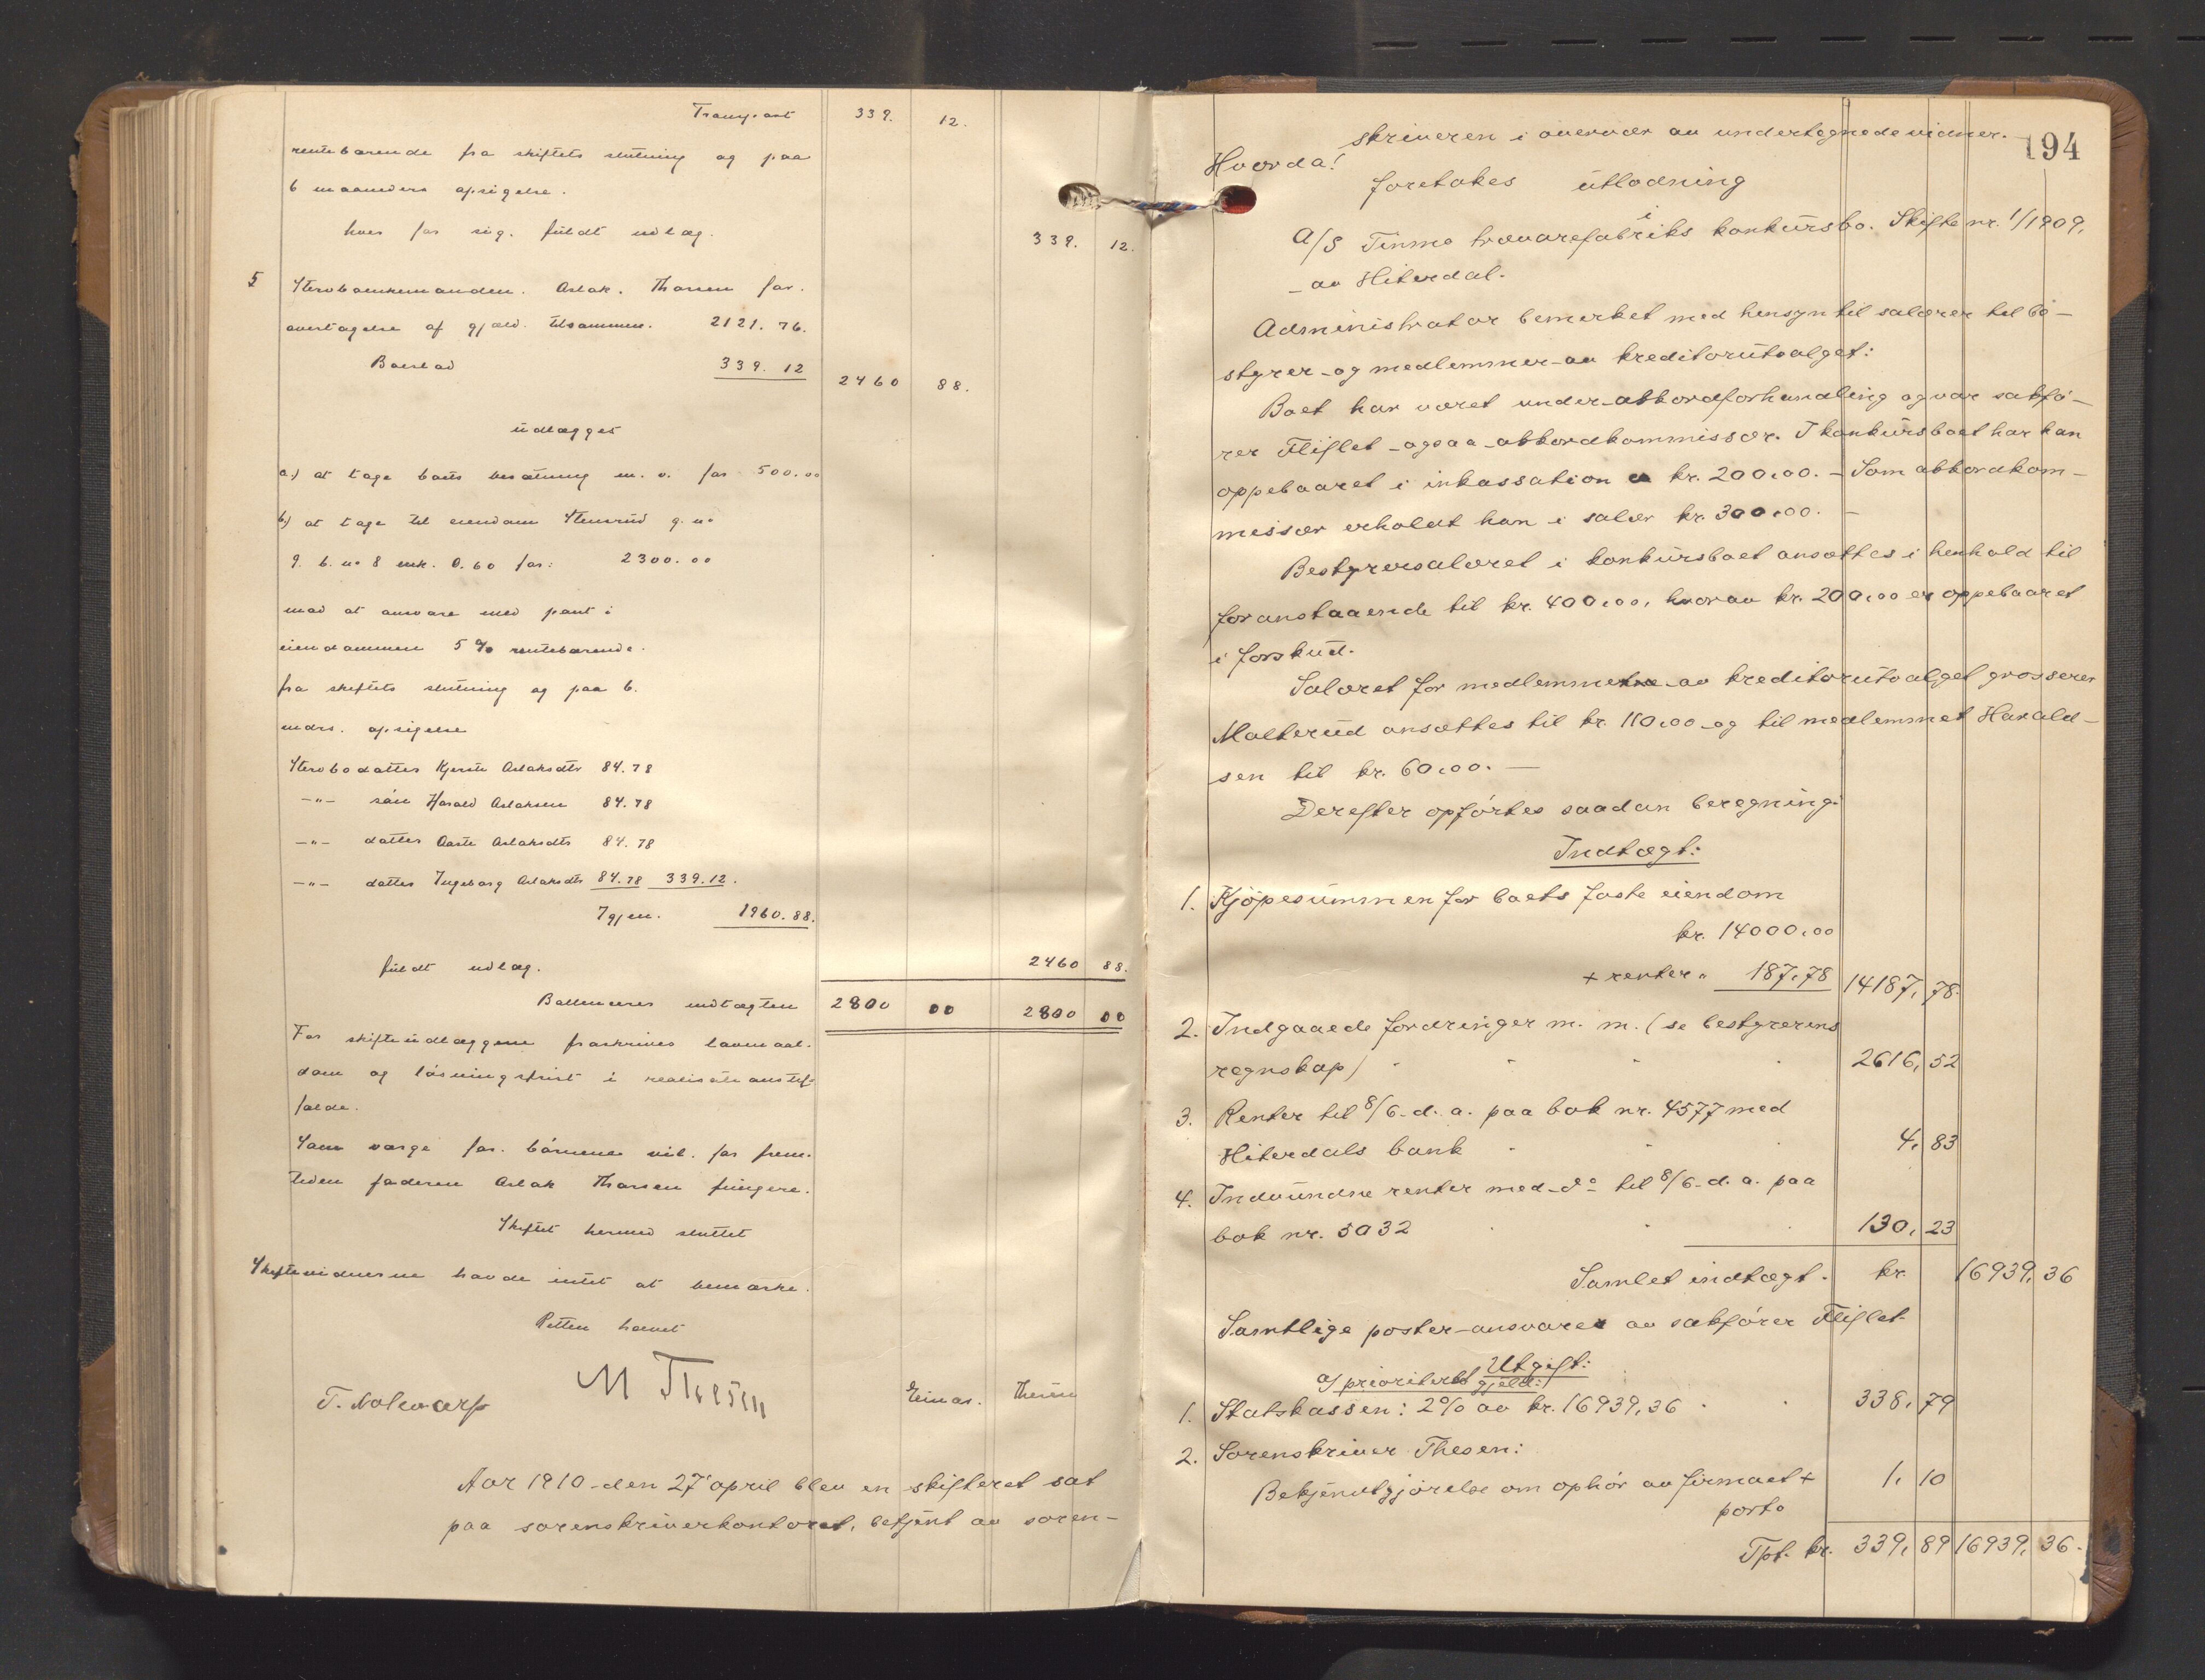 Transport 339. 12.
rentebærende fra skiftets slutning og paa
6 maaneders opsigelse.
hver for sig. fuldt udlæg. 339. 12.
5 Stervboenkemanden. Aslak. Thorsen for.
overtagelse af gjæld. tilsammen. 2121. 76.
Boeslod 339. 12 2460 88.
udlægges
a.) at tage boets besætning m. v. for 500.00
b) at tage til eiendom Stensrud g. no
9. b. no 8 mk. 0.60 for: 2300.00
mod at ansvare med pant i
eiendommen 5 % rentebærende.
fra skiftets slutning og paa 6.
mdrs. opsigelse
Stervbodatter Kjersti Aslaksdtr 84.78
-"- søn Harald Aslaksen 84.78
-"- datter Aaste Aslaksdtr 84.78
-"- datter Ingeborg Aslaksdtr 84.78 339.12.
Igjen. 1960.88.
fuldt udlæg. 2460 88.
Ballancerer indtægten 2800 00 2800 00
For skifteudlæggene fraskrives lovmaal.
dom og løsningsfrist i realisations til-
fælde.
Som værge for. børnene vil. for frem.
tiden faderen Aslak Thorsen fungere.
Skiftet hermed sluttet
Skiftevidnerne havde intet at bemærke.
Retten hævet
M Thesen
T. Einar. Thesen
Aar 1910 den 27' april blev en skifteret sat
paa sorenskriverkontoret, betjent av soren-
194
skriveren i overvær av undertegnede vidner.
Hvorda!
foretokes utlodning
i
A/S Tinme trævarefabriks konkursbo. Skifte nr. 1/1909,
av Hiterdal.
Administrator bemerket med hensyn til salærer til bo-
styrer og medlemmer av kreditorutvalget:
Boet har været under akkordforhandling og var sakfø-
rer Fliflet ogsaa akkordkommissær. I konkursboet har han
oppebaaret i inkassation kr. 200,00. - Som akkordkom-
missær erholdt han i salær kr. 300,00. -
Bestyrersalæret i konkursboet ansættes i henhold til
foranstaaende til kr. 400,00, hvorav kr. 200,00 er oppebaaret
i forskud.
Salæret for medlemmerne av kreditorutvalget grosserer
Malterud ansættes til kr. 110,00 og til medlemmet Harald-
sen til kr. 60,00. -
Derefter opførtes saadan beregning:
Indtægt:
1. Kjøpesummen for boets faste eiendom
kr. 14000,00
+ renter " 187,78 14187, 78.
2. Indgaaede fordringer m. m. (se bestyrerens
regnskap) 2616, 52
3. Renter til 8/6 d. a. paa bok nr. 4577 med
Hiterdals bank 4, 83
4. Indvundne renter med do til 8/6 d. a. paa
bok nr. 5032 130, 23
Samlet indtægt. kr. 16939, 36
Samtlige poster ansvares av sakfører Fliflet.
Utgift:
a) prioritert gjæld:
1. Statskassen: 2% av kr. 16939,36 338, 79
2. Sorenskriver Thesen:
Bekjendtgjørelse om ophør av firmaet + 1, 10
porto
Tpt. kr. 339, 89 16939, 36.